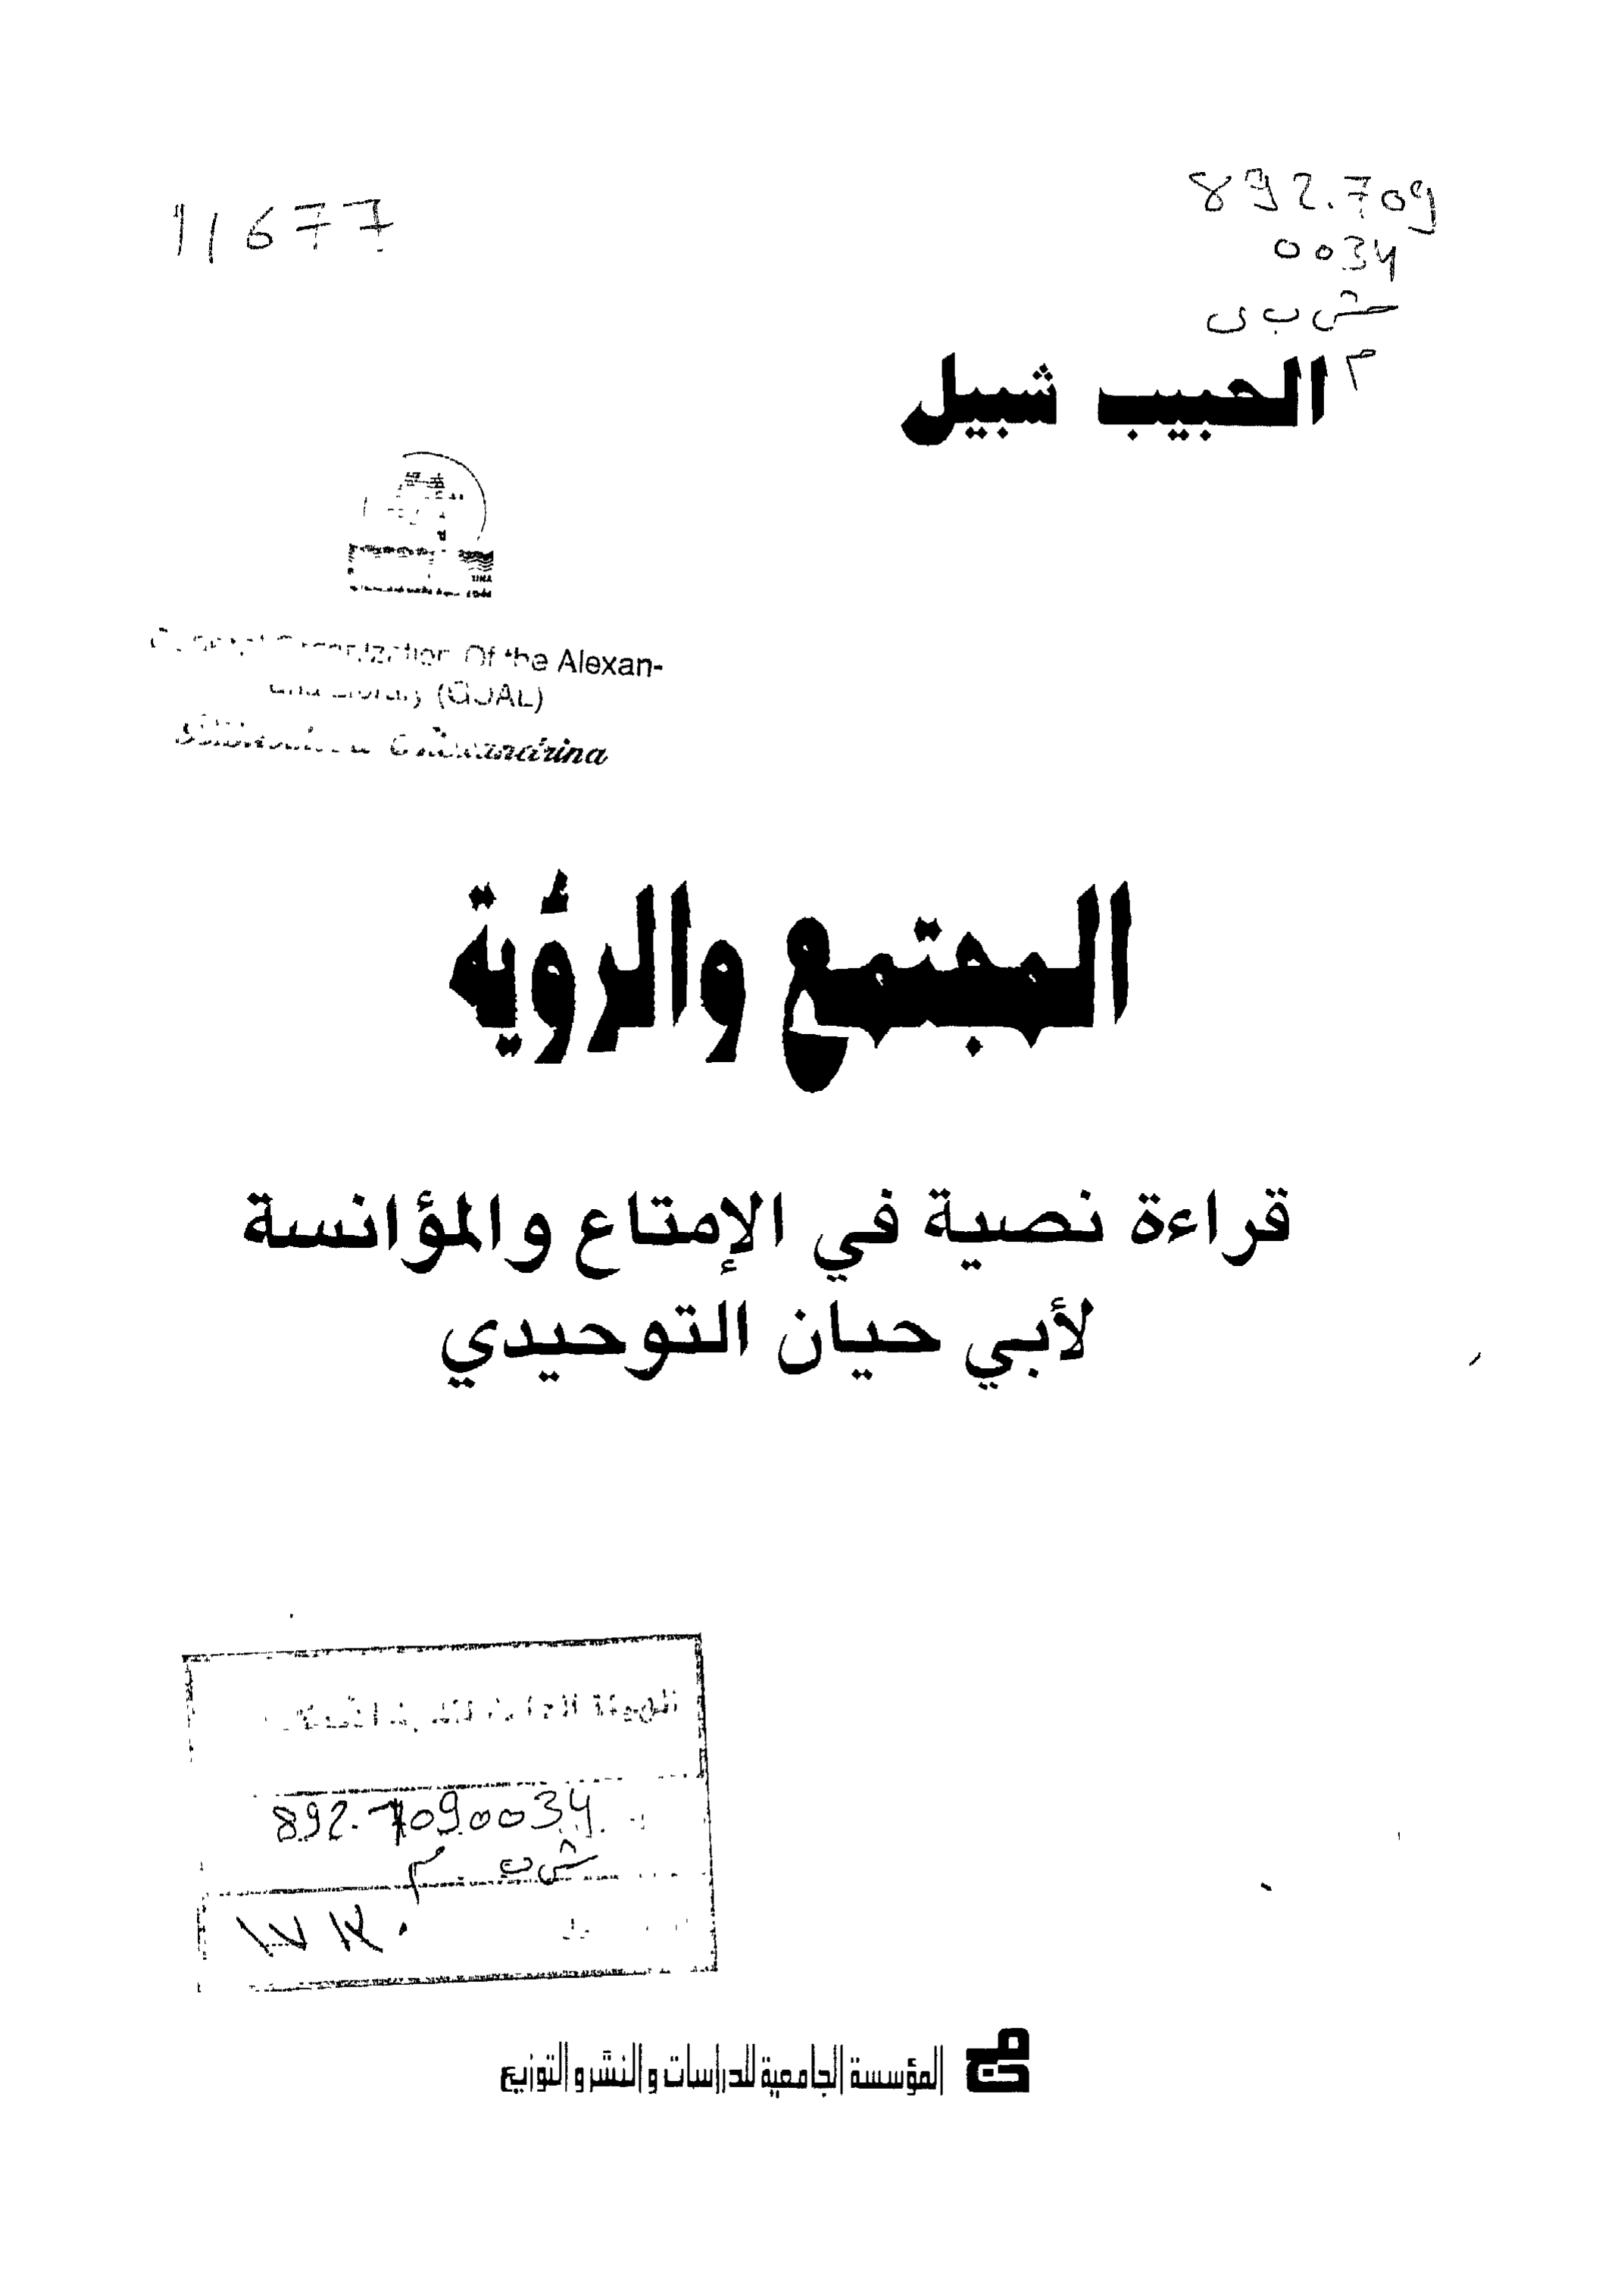 892.709
0034
ش ب ى
م
11677
الحبيب شبيل
General Organization Of the Alexan-
dria Library (GOAL)
Bibliotheca Alexandrina
المجتمع والرؤية
قراءة نصية في الإمتاع والمؤانسة
لأبي حيان التوحيدي
892.7090034
ش ب م
المؤسسة الجامعية للدراسات والنشر والتوزيع